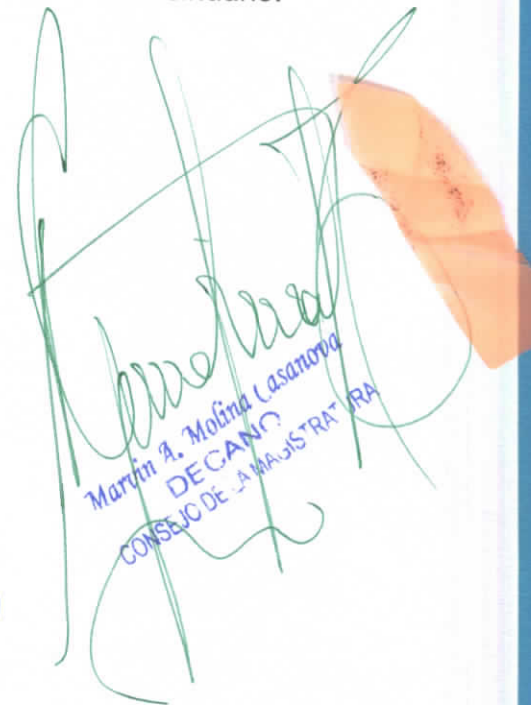 Marvin A. Molina Casanova
DECANO
CONSEJO DE LA MAGISTRATURA